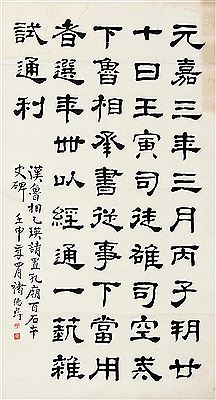 元嘉三年三月丙子朔廿
十日壬寅司徒雄司空戒
下魯相承書從事下當用
者選年卌以經通一藝雜
試通利
漢魯相乙瑛請置孔廟百石卒
史碑 壬申